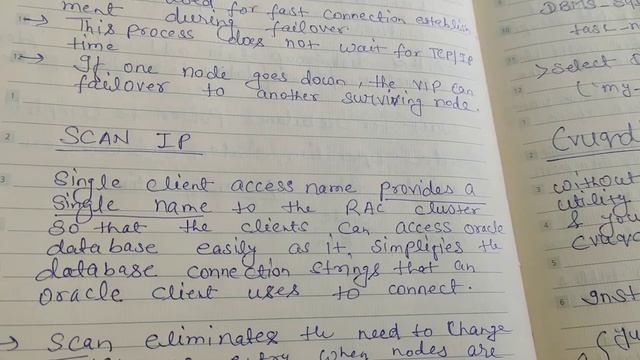 used for fast connection establish
ment during failover.
→ This process does not wait for TCP/IP
time
→ If one node goes down, the VIP can
failover to another surviving node.
SCAN IP
Single client access name provides a
single name to the RAC cluster
so that the clients can access oracle
database easily as it simplifies the
database connection strings that an
oracle client uses to connect.
→ Scan eliminates the need to change
when nodes are
DBMS
task-n
> Select
('my-
Cvuqd
without
utility
& you
Cvuqd
Inst
1
2
3
9
10
11
12
1
2
3
4
5
6